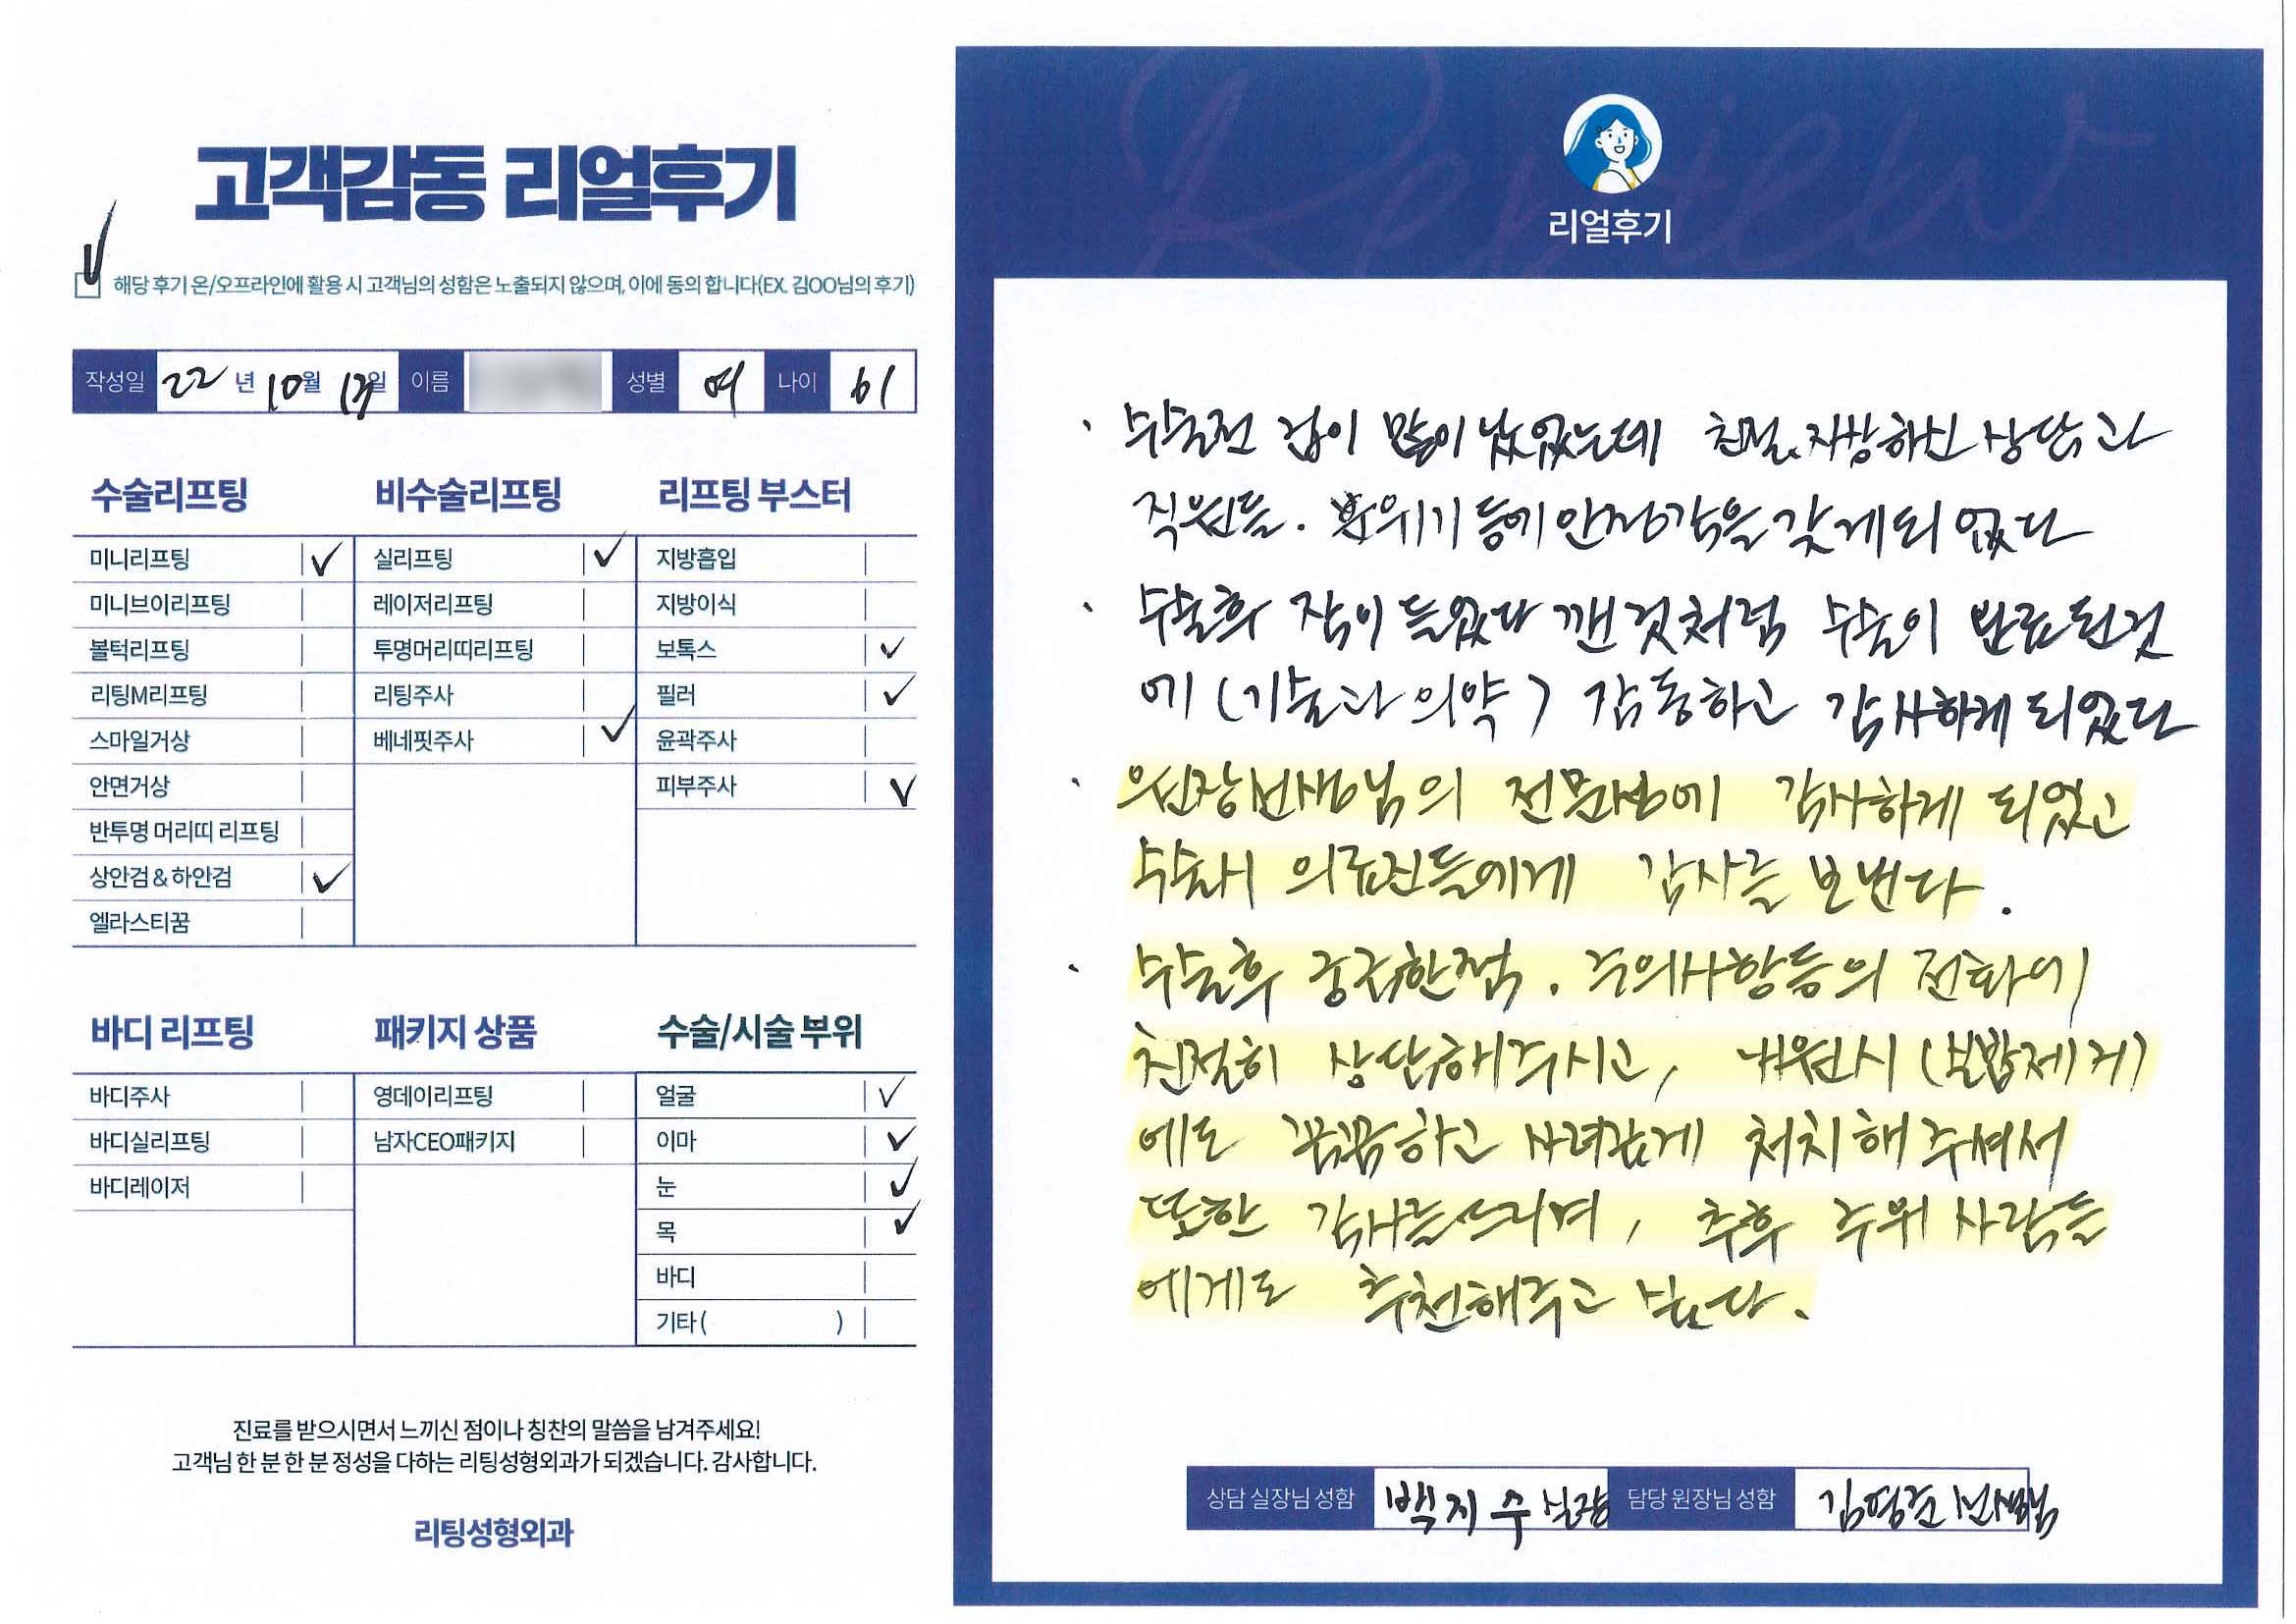 고객감동 리얼후기
해당 후기 온/오프라인에 활용 시 고객님의 성함은 노출되지 않으며, 이에 동의 합니다(EX. 김OO님의 후기)
작성일 22년 10월 13일 이름 성별 여 나이 61
수술리프팅
미니리프팅 ✓
미니브이리프팅
볼턱리프팅
리팅M리프팅
스마일거상
안면거상
반투명 머리띠 리프팅
상안검&하안검 ✓
엘라스티꿈
비수술리프팅
실리프팅 ✓
레이저리프팅
투명머리띠리프팅
리팅주사
베네핏주사 ✓
리프팅 부스터
지방흡입
지방이식
보톡스 ✓
필러 ✓
윤곽주사
피부주사 ✓
바디 리프팅
바디주사
바디실리프팅
바디레이저
패키지 상품
영데이리프팅
남자CEO패키지
수술/시술 부위
얼굴 ✓
이마 ✓
눈 ✓
목 ✓
바디
기타( )
진료를 받으시면서 느끼신 점이나 칭찬의 말씀을 남겨주세요!
고객님 한 분 한 분 정성을 다하는 리팅성형외과가 되겠습니다. 감사합니다.
리팅성형외과
Review
리얼후기
· 수술전 겁이 많이 났었는데 친절,자상하신 상담과
직원들. 분위기 등에 안정감을 갖게되었다
· 수술후 잠이 들었다 깬것처럼 수술이 완료된것
에 (기술과 의약) 감동하고 감사하게 되었다
· 원장선생님의 전문성에 감사하게 되었고
수술시 의료진들에게 감사를 보낸다.
· 수술후 궁금한점. 주의사항등의 전화에
친절히 상담해주시고, 내원시 (실밥제거)
에도 꼼꼼하고 사려깊게 처치해주셔서
또한 감사를드리며, 추후 주위 사람들
에게도 추천해주고 싶다.
상담 실장님 성함 백지수 실장 담당 원장님 성함 김영준 선생님